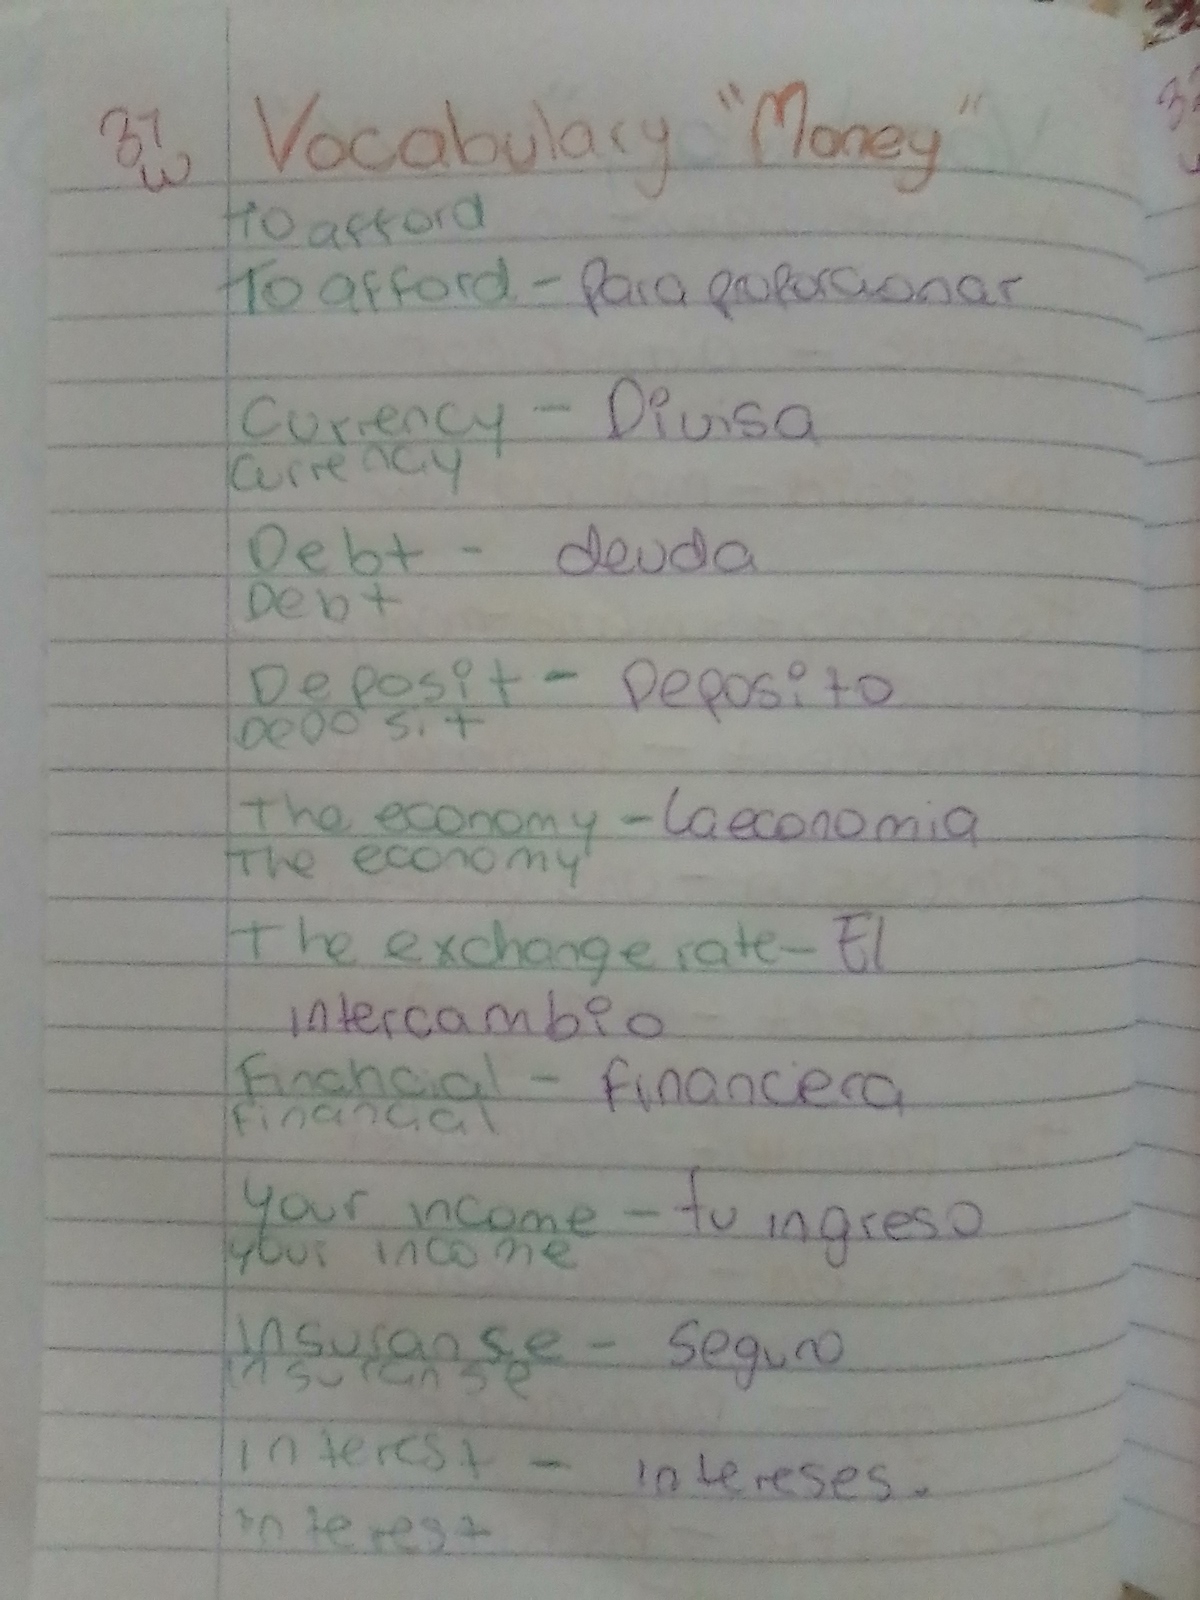 37 Vocabulary "Money"
w
to afford
To afford - Para proporcionar
Currency - Divisa
Currency
Debt - deuda
Debt
Deposit - Deposito
Deposit
The economy - La economia
The economy
The exchange rate - El
intercambio
Financial - Financera
Financial
Your income - tu ingreso
your income
Insuranse - Seguro
Insuranse
interest - intereses.
interest